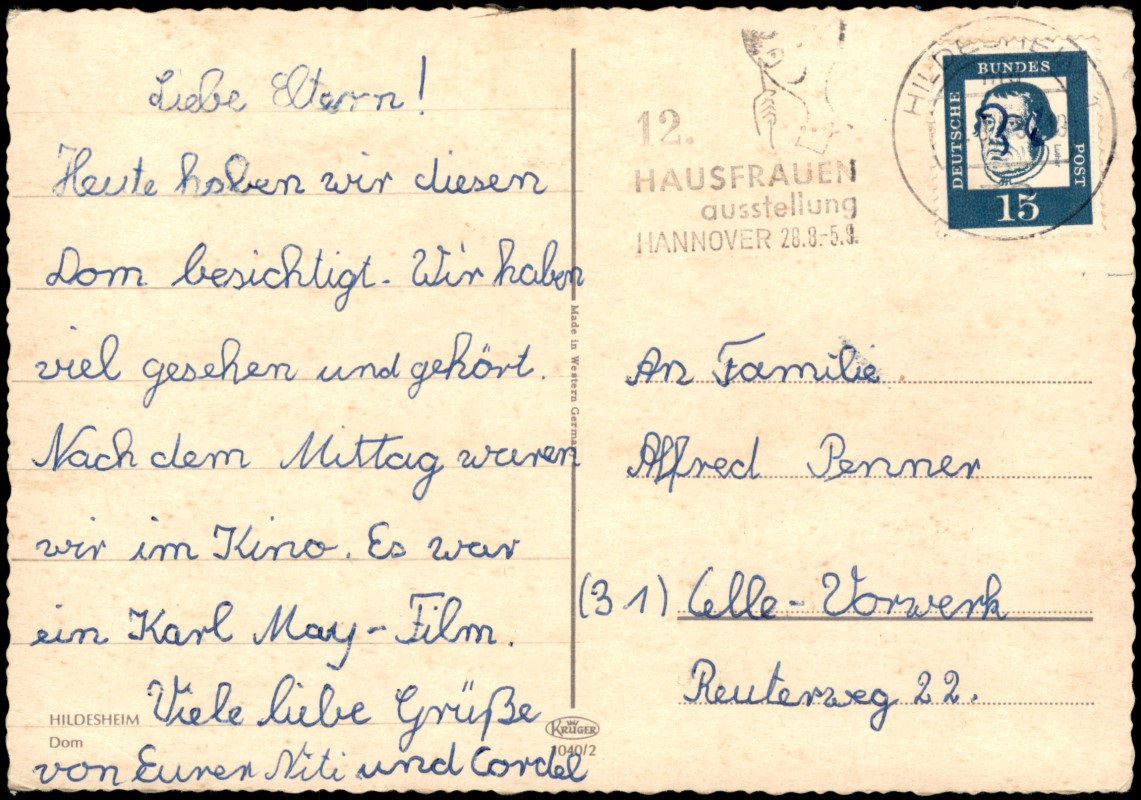 Liebe Eltern!
Heute haben wir diesen
Dom besichtigt. Wir haben
viel gesehen und gehört.
Nach dem Mittag waren
wir im Kino. Es war
ein Karl May-Film.
Viele liebe Grüße
von Eurer Niti und Cordel
HILDESHEIM
Dom
Made in Western Germany
KRÜGER
1040/2
12.
HAUSFRAUEN
ausstellung
HANNOVER 28.8.-5.9.
HILDESHEIM
DEUTSCHE
BUNDES
POST
15
An Familie
Alfred Penner
(31) Celle-Vorwerk
Reuterweg 22.